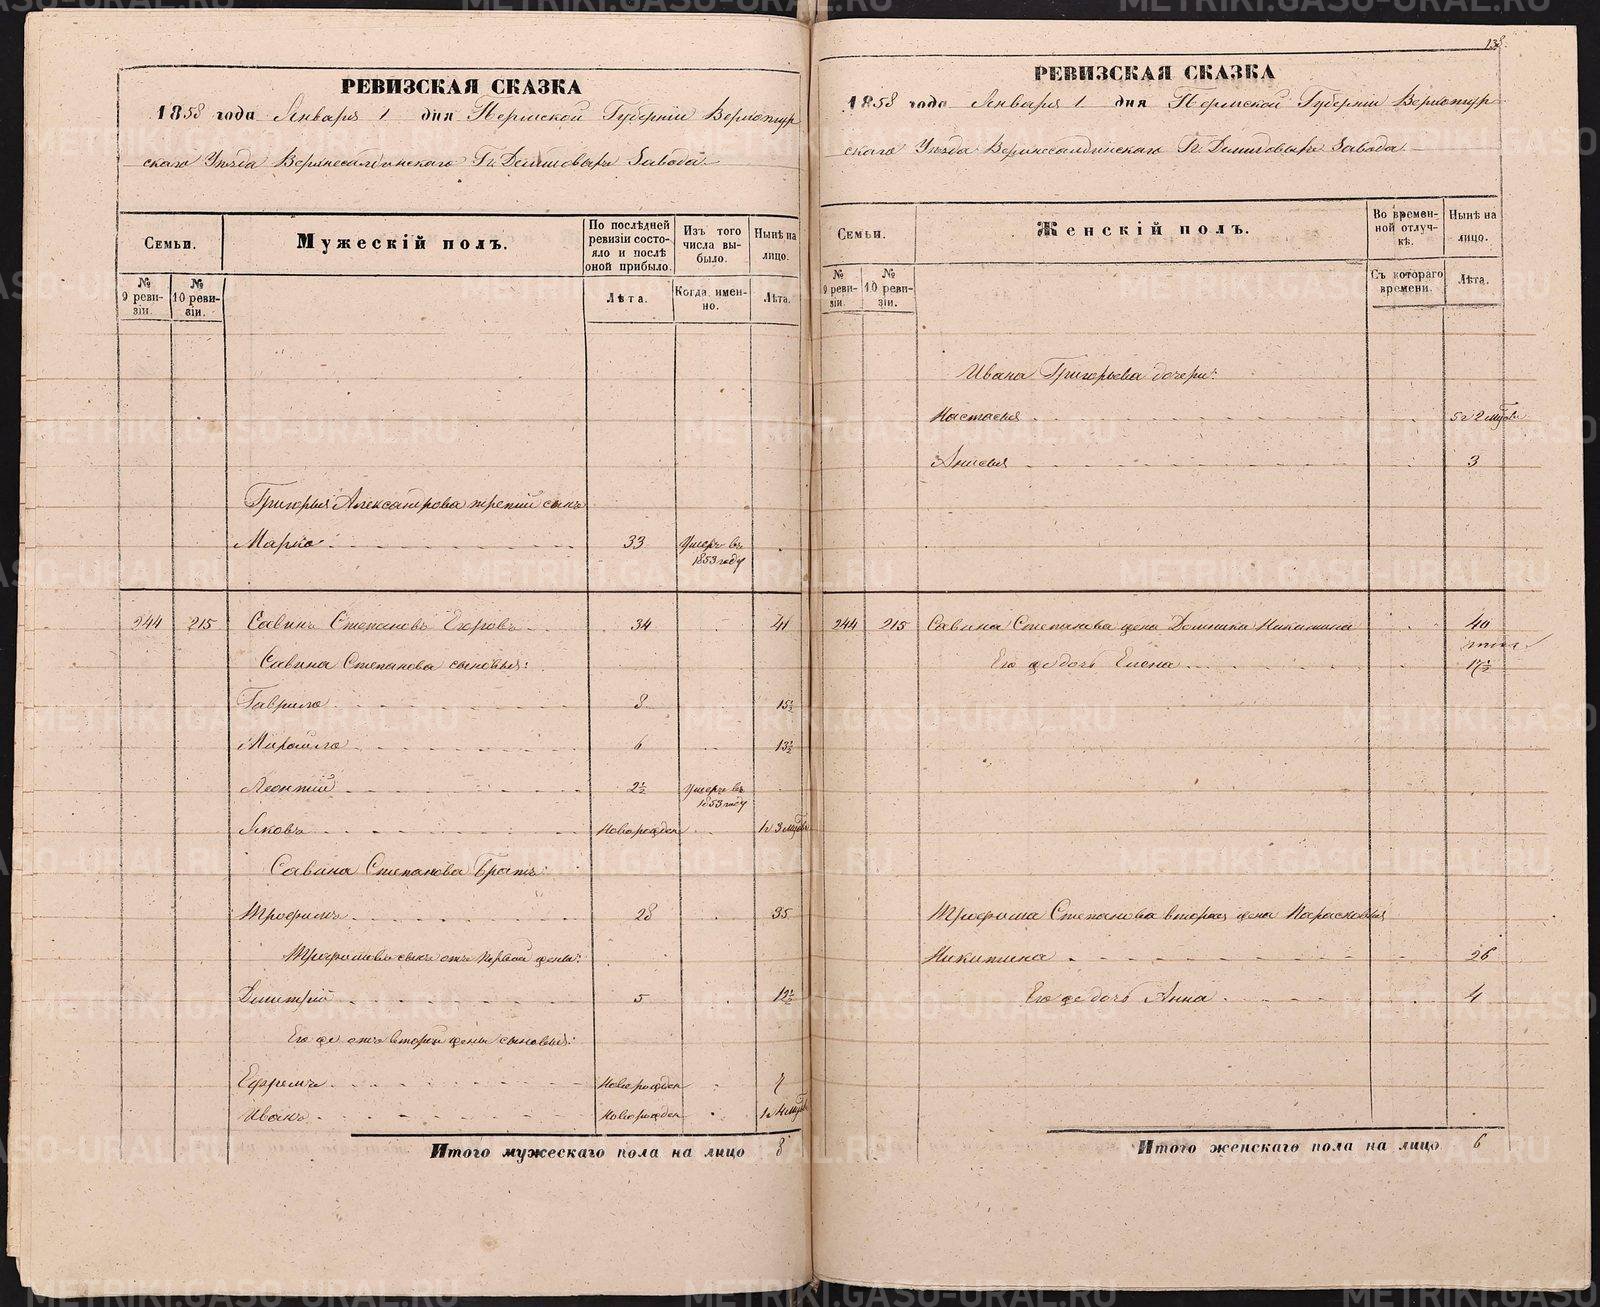 РЕВИЗСКАЯ СКАЗКА
1858 года Января 1 дня Пермской Губернiи Верхотур
скаго Уѣзда Верхнесалдинскаго Гг. Демидовыхъ Завода.
Семьи.
Мужескiй полъ.
По послѣдней ревизiи состояло и послѣ оной прибыло.
Изъ того числа выбыло.
Нынѣ на лицо.
№ 9 ревизiи.
№ 10 ревизiи.
Лѣта.
Когда именно.
Лѣта.
Григорья Александрова третiй сынъ
Марко 33 Умеръ въ 1853 году
244 215 Савинъ Степановъ Егоровъ 34 41
Савина Степанова сыновья:
Гаврило 8 15½
Михайло 6 13½
Леонтiй 2½ Умеръ въ 1853 году
Яковъ Новорожден 1 г 3 мѣс
Савина Степанова Братъ:
Трофимъ 28 35
Трофимовъ сынъ отъ первой жены:
Дмитрiй 5 12½
Его же отъ второй жены сыновья:
Ефремъ Новорожден 7
Иванъ Новорожден 1 г 4 мѣс
Итого мужескаго пола на лицо 8
138.
РЕВИЗСКАЯ СКАЗКА
1858 года Января 1 дня Пермской Губернiи Верхотур
скаго Уѣзда Верхнесалдинскаго Гг. Демидовыхъ Завода.
Семьи.
Женскiй полъ.
Во временной отлучкѣ.
Нынѣ на лицо.
№ 9 ревизiи.
№ 10 ревизiи.
Съ котораго времени.
Лѣта.
Ивана Григорьева дочери:
Настасья 5 г 2 мѣс
Анисья 3
244 215 Савина Степанова жена Домника Никитина 40
Его же дочь Елена 17½
Трофима Степанова вторая жена Парасковья
Никитина 26
Его же дочь Анна 4
Итого женскаго пола на лицо 6
METRIKI.GASO-URAL.RU